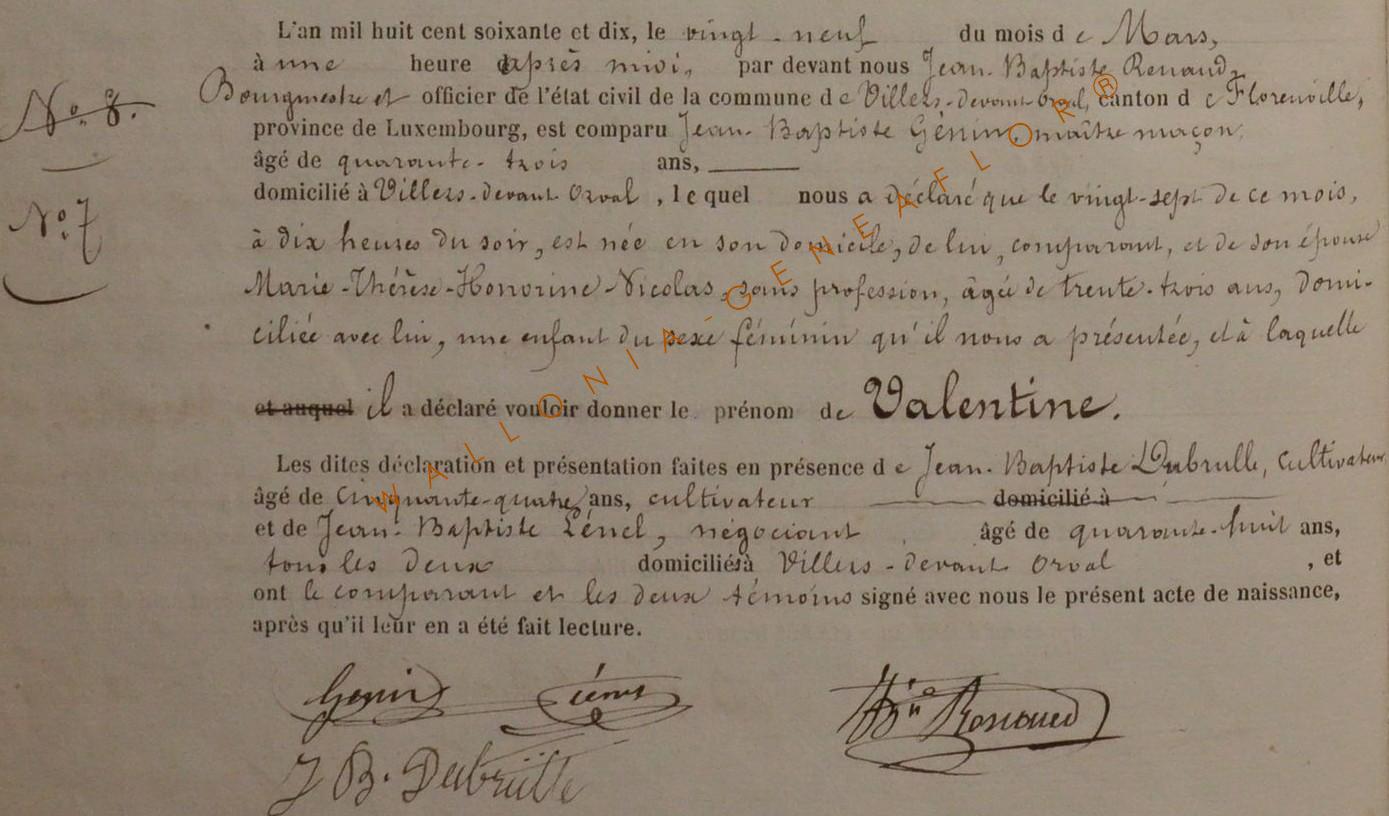 L'an mil huit cent soixante et dix, le vingt-neuf du mois de Mars,
à une heure après midi, par devant nous Jean-Baptiste Renaud,
N°. 8.
Bourgmestre et officier de l'état civil de la commune de Villers-devant-Orval, canton de Florenville,
province de Luxembourg, est comparu Jean-Baptiste Génin, maître maçon,
âgé de quarante-trois ans,
domicilié à Villers-devant Orval, lequel nous a déclaré que le vingt-sept de ce mois,
N°. 7
à dix heures du soir, est née en son domicile, de lui, comparant, et de son épouse
Marie-Thérèse-Honorine-Nicolas, sans profession, âgée de trente-trois ans, domi-
ciliée avec lui, une enfant du sexe féminin qu'il nous a présentée, et à laquelle
et auquel il a déclaré vouloir donner le prénom de Valentine.
Les dites déclaration et présentation faites en présence de Jean-Baptiste Dubrulle, cultivateur
âgé de cinquante-quatre ans, cultivateur domicilié à
et de Jean-Baptiste négociant âgé de quarante-huit ans,
tous les deux domiciliés à Villers-devant Orval, et
ont le comparant et les deux témoins signé avec nous le présent acte de naissance,
après qu'il leur en a été fait lecture.
Genin
J B. Dubrulle
WALLONIA-GENEAFLOR®